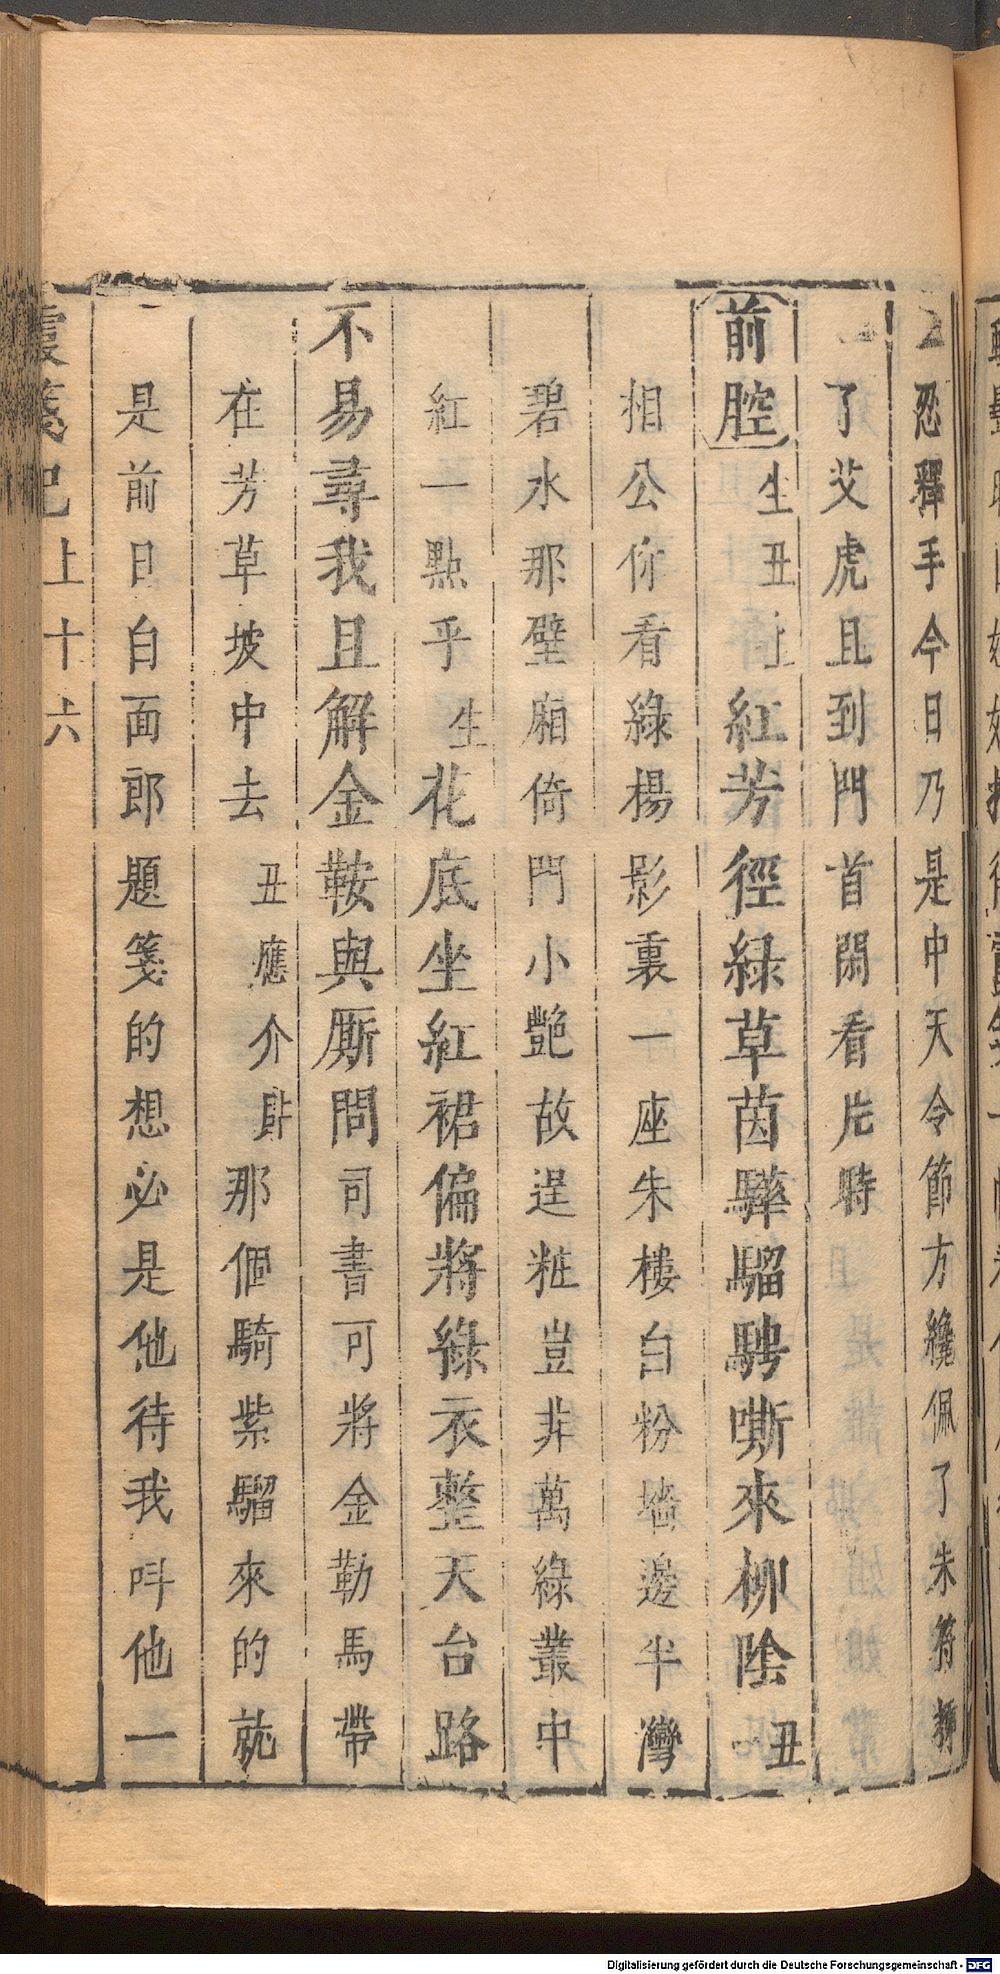 忍釋手今日乃是中天令節方纔佩了朱符插
了艾虎且到門首閑看片時
前腔 生丑上 紅芳徑綠草茵驊騮騁嘶來柳陰 丑
相公你看綠楊影裏一座朱樓白粉墻邊半灣
碧水那壁廂倚門小艷故逞粧豈非萬綠叢中
紅一點乎 生 花底坐紅裙偏將綠衣整天台路
不易尋我且解金鞍與厮問 司書可將金勒馬帶
在芳草坡中去 丑應介 那個騎紫騮來的就
是前日白面郎題箋的想必是他待我呌他一
霞箋記 上 十六
Digitalisierung gefördert durch die Deutsche Forschungsgemeinschaft - DFG